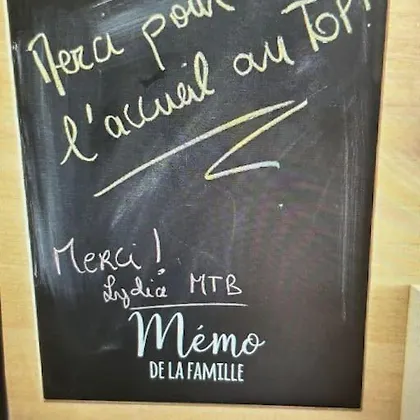 Merci pour
l'accueil au TOP!
Merci!
Lydia MTB
Mémo
DE LA FAMILLE